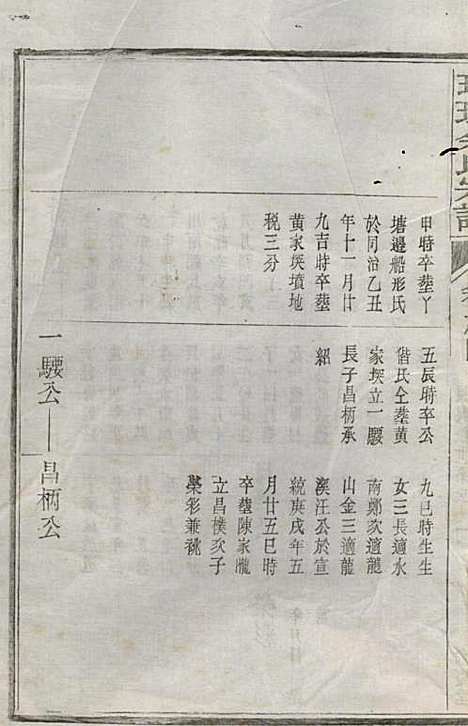 甲時卒塟丫
塘邊船形氏
於同治乙丑
年十一月廿
九吉時卒塟
黄家塽墳地
税三分
五辰時卒公
偕氏仝塟黄
家塽立一騕
長子昌柄承
紹
九巳時生生
女三長適永
南鄭次適龍
山金三適龍
溪汪公於宣
統庚戌年五
月廿五巳時
卒塟陳家隴
立昌樸次子
榮彩兼祧
一騕公——昌柄公